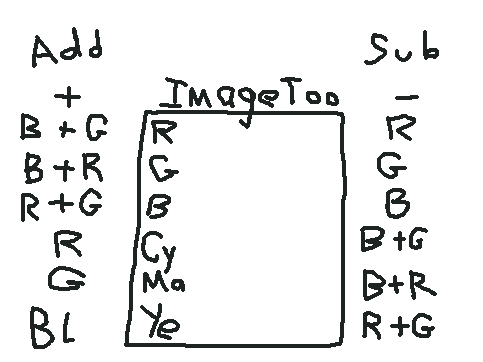 Add Sub
+ ImageToo -
B+G R R
B+R G G
R+G B B
R Cy B+G
G Ma B+R
Bl Ye R+G